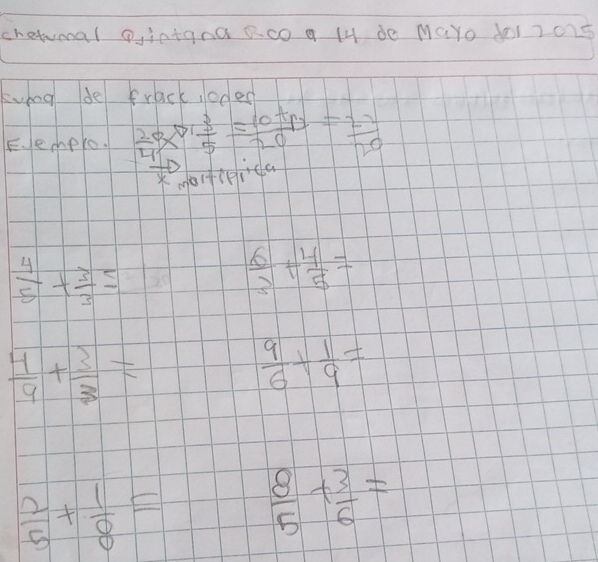 chetumal Quintana Roo a 14 de Mayo del 2025
Suma de fracciones
Ejemplo. 2/4 + 3/5 = 10+12/20 = 22/20
x multiplica
4/5 + 3/3 = 6/3 + 4/5 =
4/9 + 3/3 = 9/6 + 1/9 =
2/5 + 1/8 = 8/5 + 3/6 =